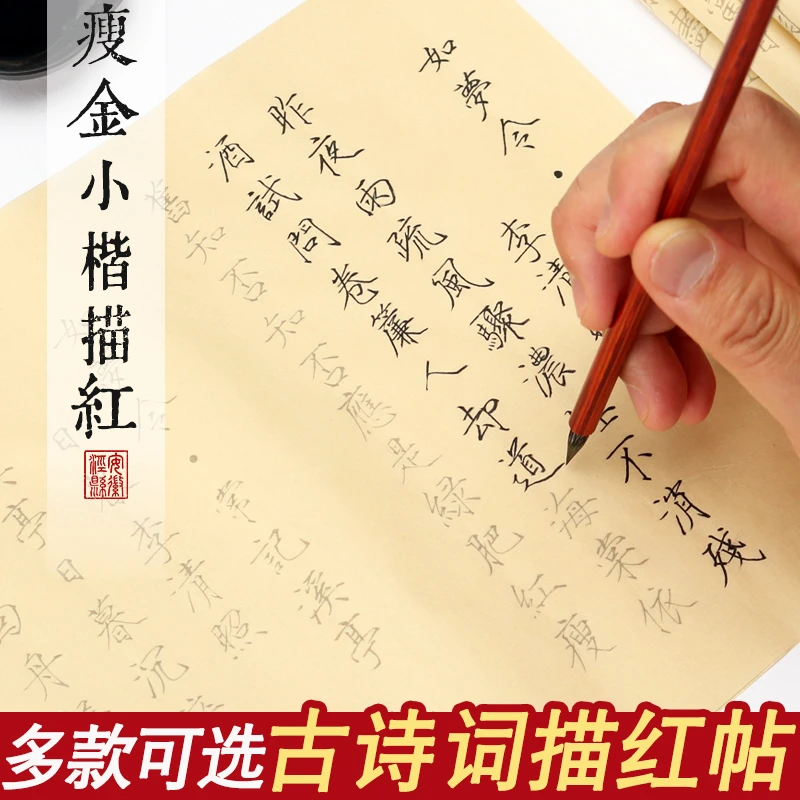 瘦金小楷描紅
安徽
涇縣
如夢令 • 李清
昨夜雨疏風驟濃不消殘
酒試問卷簾人却道海棠依
舊知否知否應是綠肥紅瘦
• 常記溪亭
李清照
日暮沉
亭
舟
多款可选古诗词描红帖